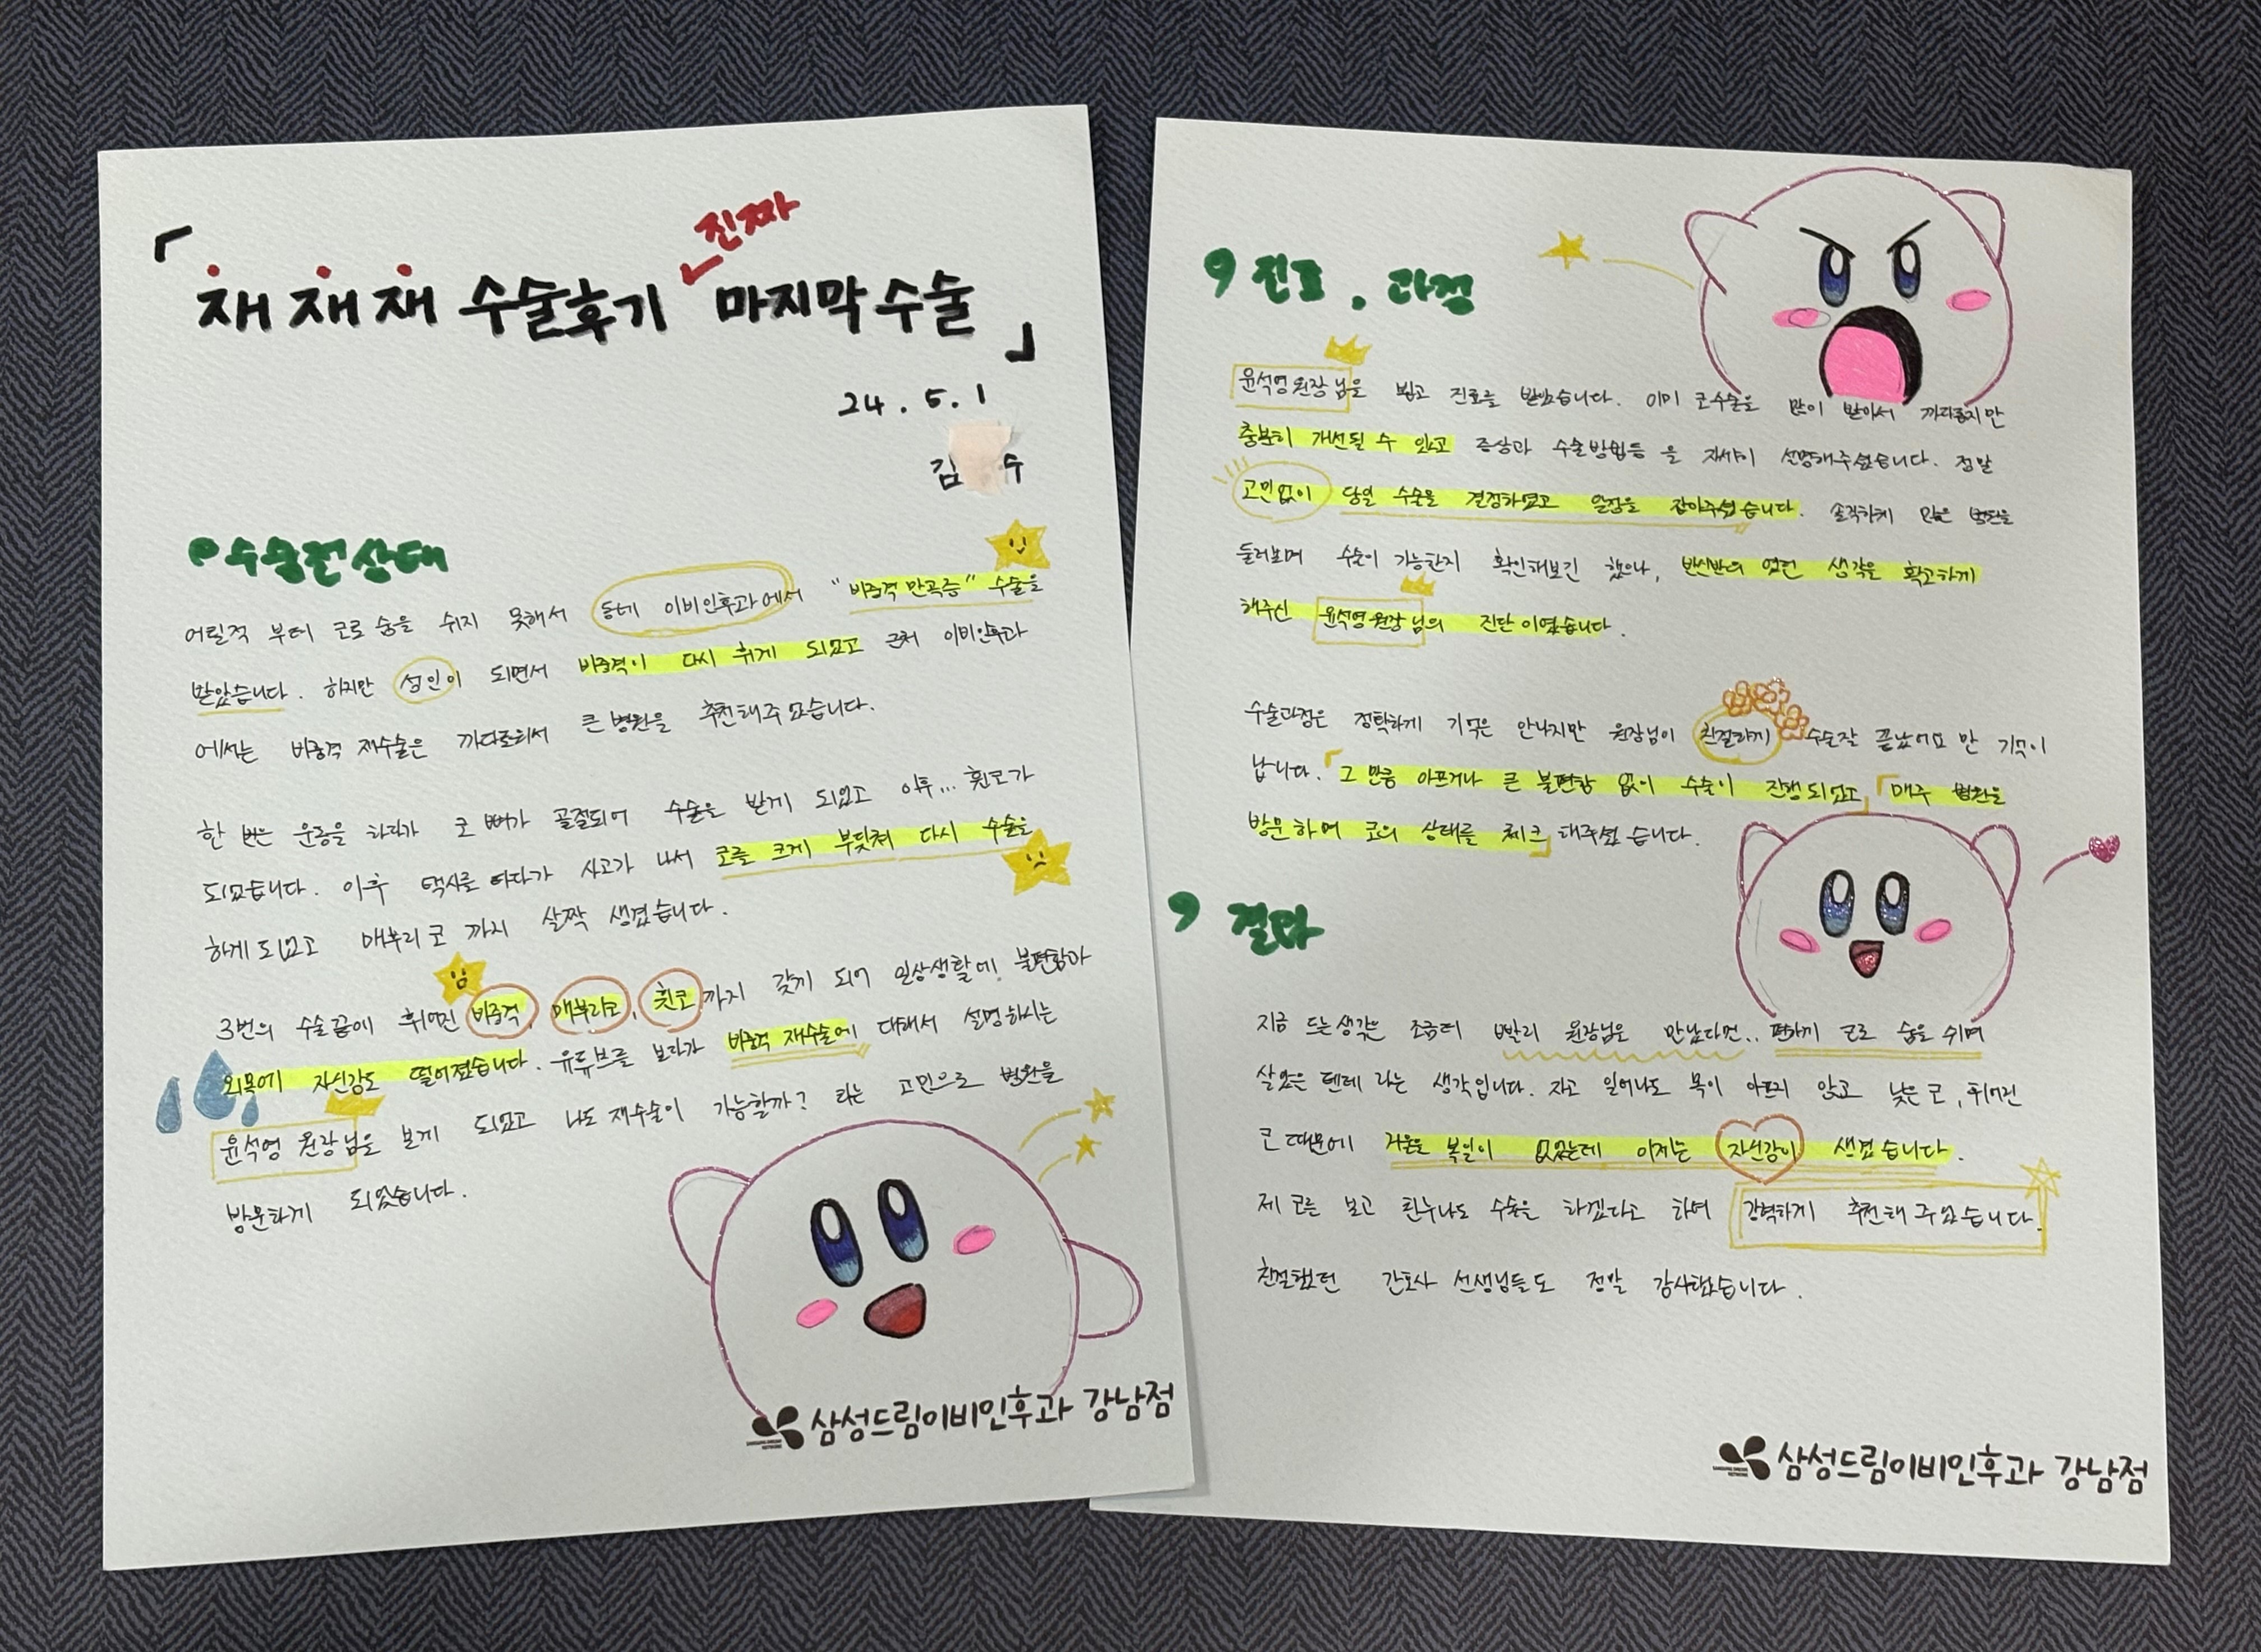 「재재재 수술후기 진짜 마지막 수술」
24.5.1
김 수
수술전 상태
어릴적 부터 코로 숨을 쉬지 못해서 동네 이비인후과에서 "비중격 만곡증" 수술을
받았습니다. 하지만 성인이 되면서 비중격이 다시 휘게 되었고 근처 이비인후과
에서는 비중격 재수술은 까다로워서 큰 병원을 추천해주었습니다.
한 번은 운동을 하다가 코 뼈가 골절되어 수술을 받게 되었고 이후... 휜코가
되었습니다. 이후 택시를 타다가 사고가 나서 코를 크게 부딪쳐 다시 수술을
하게 되었고 매부리코 까지 살짝 생겼습니다.
3번의 수술끝에 휘어진 비중격, 매부리코, 휜코까지 갖게 되어 일상생활에 불편함과
외모에 자신감도 떨어졌습니다. 유튜브를 보다가 비중격 재수술에 대해서 설명하시는
윤석영 원장님을 보게 되었고 나도 재수술이 가능할까? 라는 고민으로 병원을
방문하게 되었습니다.
삼성드림이비인후과 강남점
진료, 과정
윤석영원장님을 뵙고 진료를 받았습니다. 이미 코수술을 많이 받아서 까다롭지만
충분히 개선될 수 있고 증상과 수술방법등 을 자세히 설명해주셨습니다. 정말
고민없이 당일 수술을 결정하였고 일정을 잡아주셨습니다. 솔직하게 많은 병원을
둘러보며 수술이 가능한지 확인해보긴 했으나, 반신반의 였던 생각을 확고하게
해주신 윤석영원장님의 진단이였습니다.
수술과정은 정확하게 기억은 안나지만 원장님이 친절하게 수술잘 끝났어요 만 기억이
납니다. 「그 만큼 아프거나 큰 불편함 없이 수술이 진행되었고」 「매주 병원을
방문하여 코의 상태를 체크」해주셨습니다.
결과
지금 드는생각은 조금더 빨리 원장님을 만났다면.. 편하게 코로 숨을 쉬며
살았을 텐데 라는 생각입니다. 자고 일어나도 목이 아프지 않고 낮은 코, 휘어진
코 때문에 거울을 볼일이 없었는데 이제는 자신감이 생겼습니다.
제 코를 보고 친누나도 수술을 하겠다고 하여 강력하게 추천해 주었습니다.
친절했던 간호사 선생님들도 정말 감사했습니다.
삼성드림이비인후과 강남점